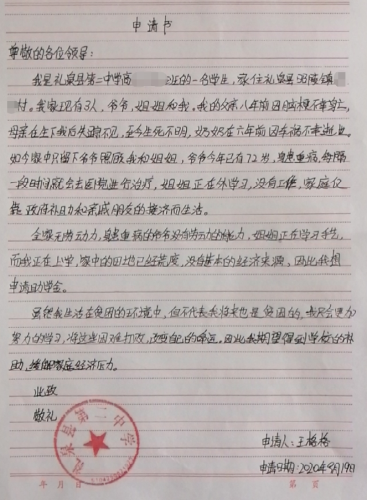 申请书
尊敬的各位领导:
我是礼泉县第二中学高 班的一名学生,家住礼泉县 镇
村。我家现有3人,爷爷、姐姐和我。我的父亲八年前因脑梗不幸身亡,
母亲在生下我后失踪不见,至今生死不明,奶奶在六年前因车祸不幸逝世。
如今家中只留下爷爷照顾我和姐姐,爷爷今年已有72岁,身患重病,每隔
一段时间就会去医院进行治疗,姐姐正在外学习,没有工作,家庭仅
靠政府补助和亲戚朋友的接济而生活。
全家无劳动力,身患重病的爷爷没有劳动的能力,姐姐正在学习手艺,
而我正在上学,家中的田地已经荒废,没有基本的经济来源,因此我想
申请助学金。
虽然我生活在贫困的环境中,但不代表我将来也是贫困的,我只会更加
努力的学习,将这些困难打败,改变自己的命运。因此我期望得到学校的补
助,缓解家庭经济压力。
此致
敬礼
礼泉县第二中学
申请人:王格格
申请日期:2020年9月19日
年 月 日
第 页